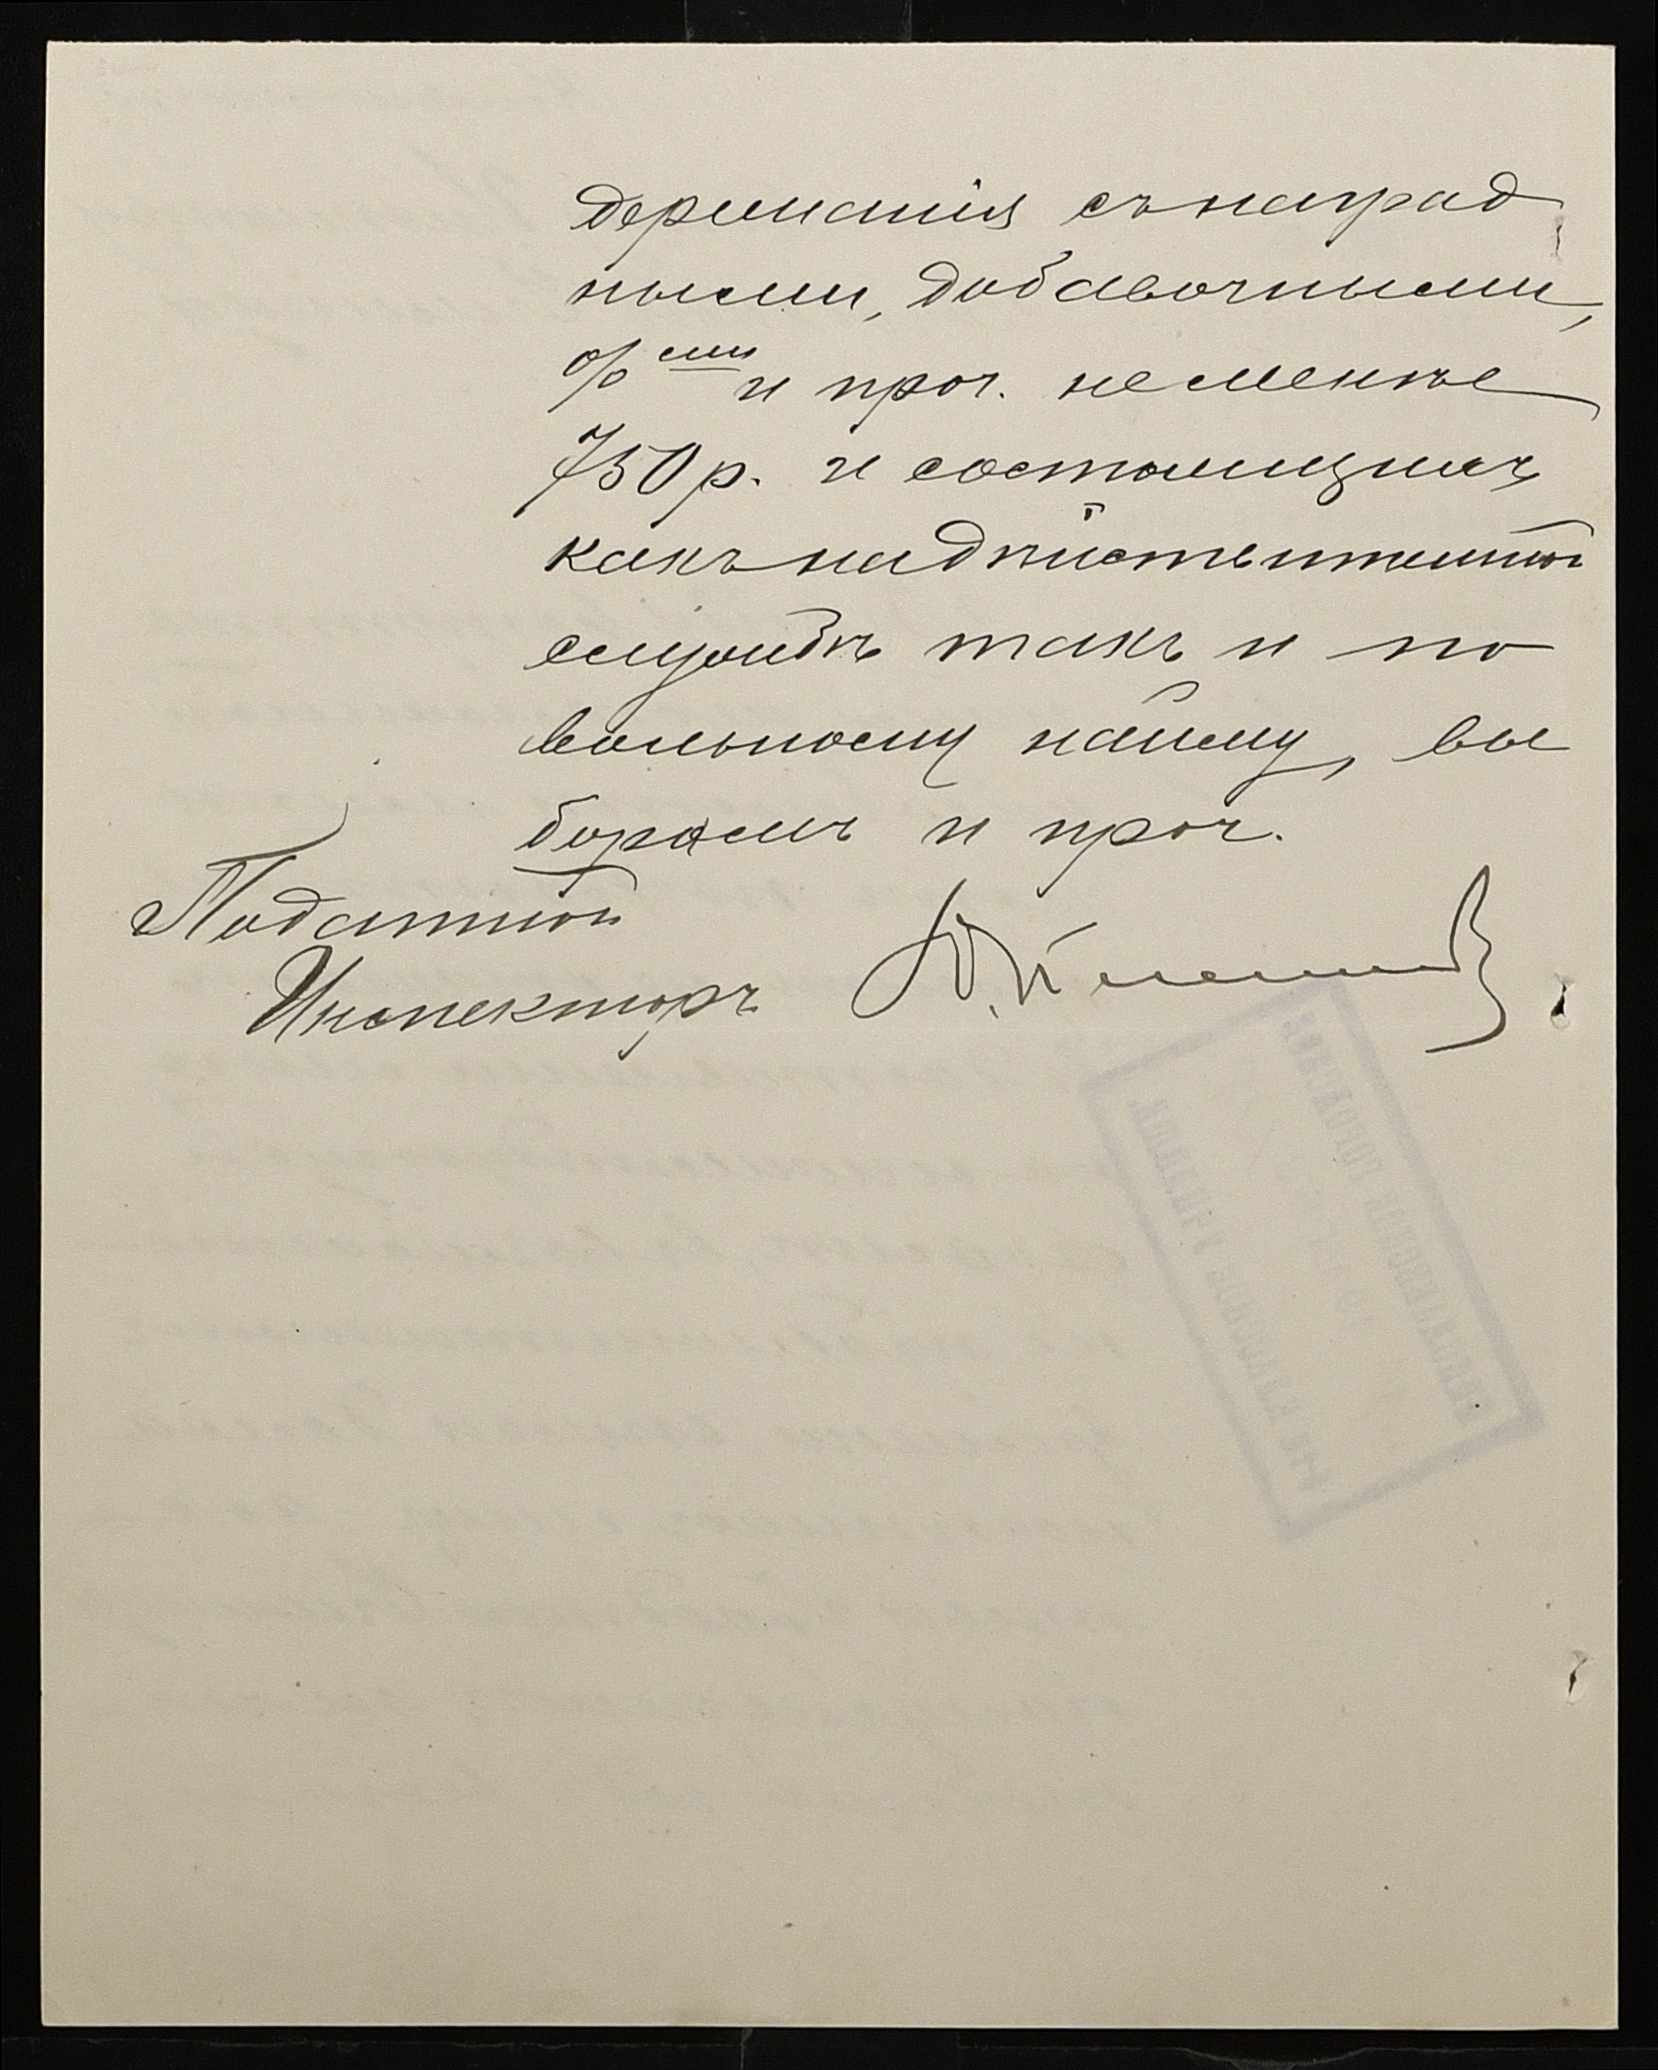 держанія съ наград
ными, добавочными,
%ми и проч. не менѣе
750 р. и состоящихъ
какъ на дѣйствительной
службѣ такъ и по
вольному найму, вы
борамъ и проч.
Податной
Инспекторъ